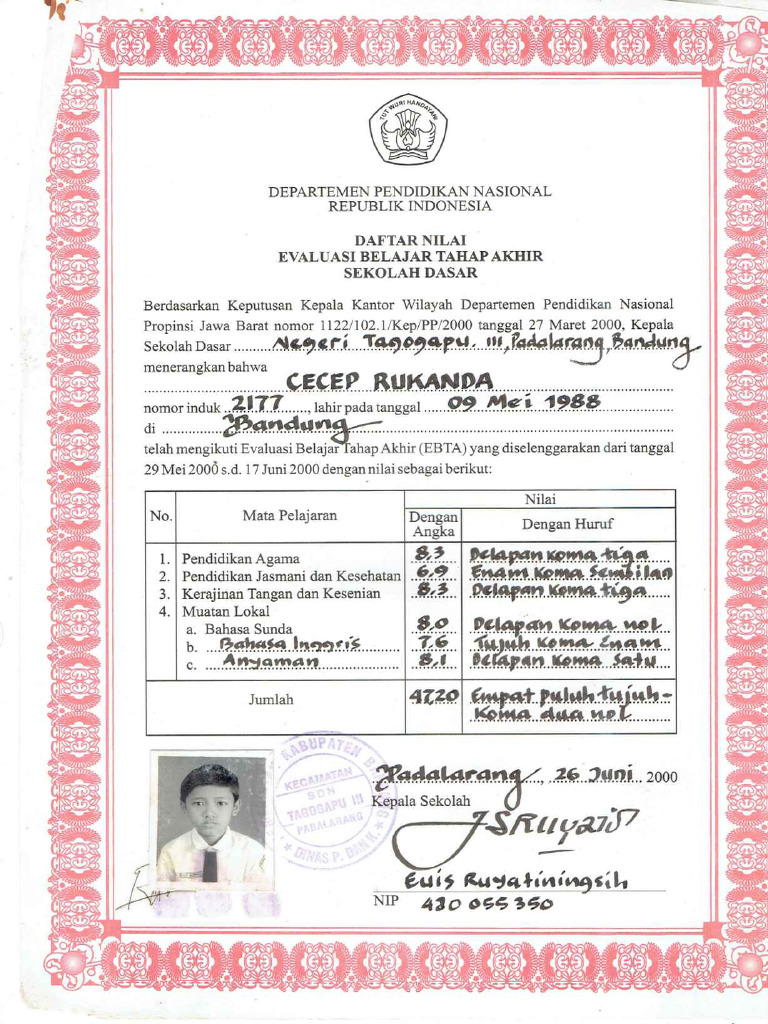 TUT WURI HANDAYANI
DEPARTEMEN PENDIDIKAN NASIONAL
REPUBLIK INDONESIA
DAFTAR NILAI
EVALUASI BELAJAR TAHAP AKHIR
SEKOLAH DASAR
Berdasarkan Keputusan Kepala Kantor Wilayah Departemen Pendidikan Nasional
Propinsi Jawa Barat nomor 1122/102.1/Kep/PP/2000 tanggal 27 Maret 2000, Kepala
Sekolah Dasar Negeri Tagogapu. III, Padalarang, Bandung
menerangkan bahwa
CECEP RUKANDA
nomor induk 2177, lahir pada tanggal 09 Mei 1988
di Bandung
telah mengikuti Evaluasi Belajar Tahap Akhir (EBTA) yang diselenggarakan dari tanggal
29 Mei 2000 s.d. 17 Juni 2000 dengan nilai sebagai berikut:
Nilai
No. Mata Pelajaran Dengan Angka Dengan Huruf
1. Pendidikan Agama 8,3 Delapan koma tiga
2. Pendidikan Jasmani dan Kesehatan 6,9 Enam Koma Sembilan
3. Kerajinan Tangan dan Kesenian 8,3 Delapan Koma tiga
4. Muatan Lokal
a. Bahasa Sunda 8,0 Delapan Koma nol
b. Bahasa Inggris 7,6 Tujuh Koma Enam
c. Anyaman 8,1 Delapan Koma Satu
Jumlah 4720 Empat puluh tujuh-
Koma dua nol
KABUPATEN
KECAMATAN
SDN
TAGOGAPU III
PADALARANG
DINAS P. DAN K.
Padalarang, 26 Juni 2000
Kepala Sekolah
Euis Ruyatiningsih
NIP 480 055 350